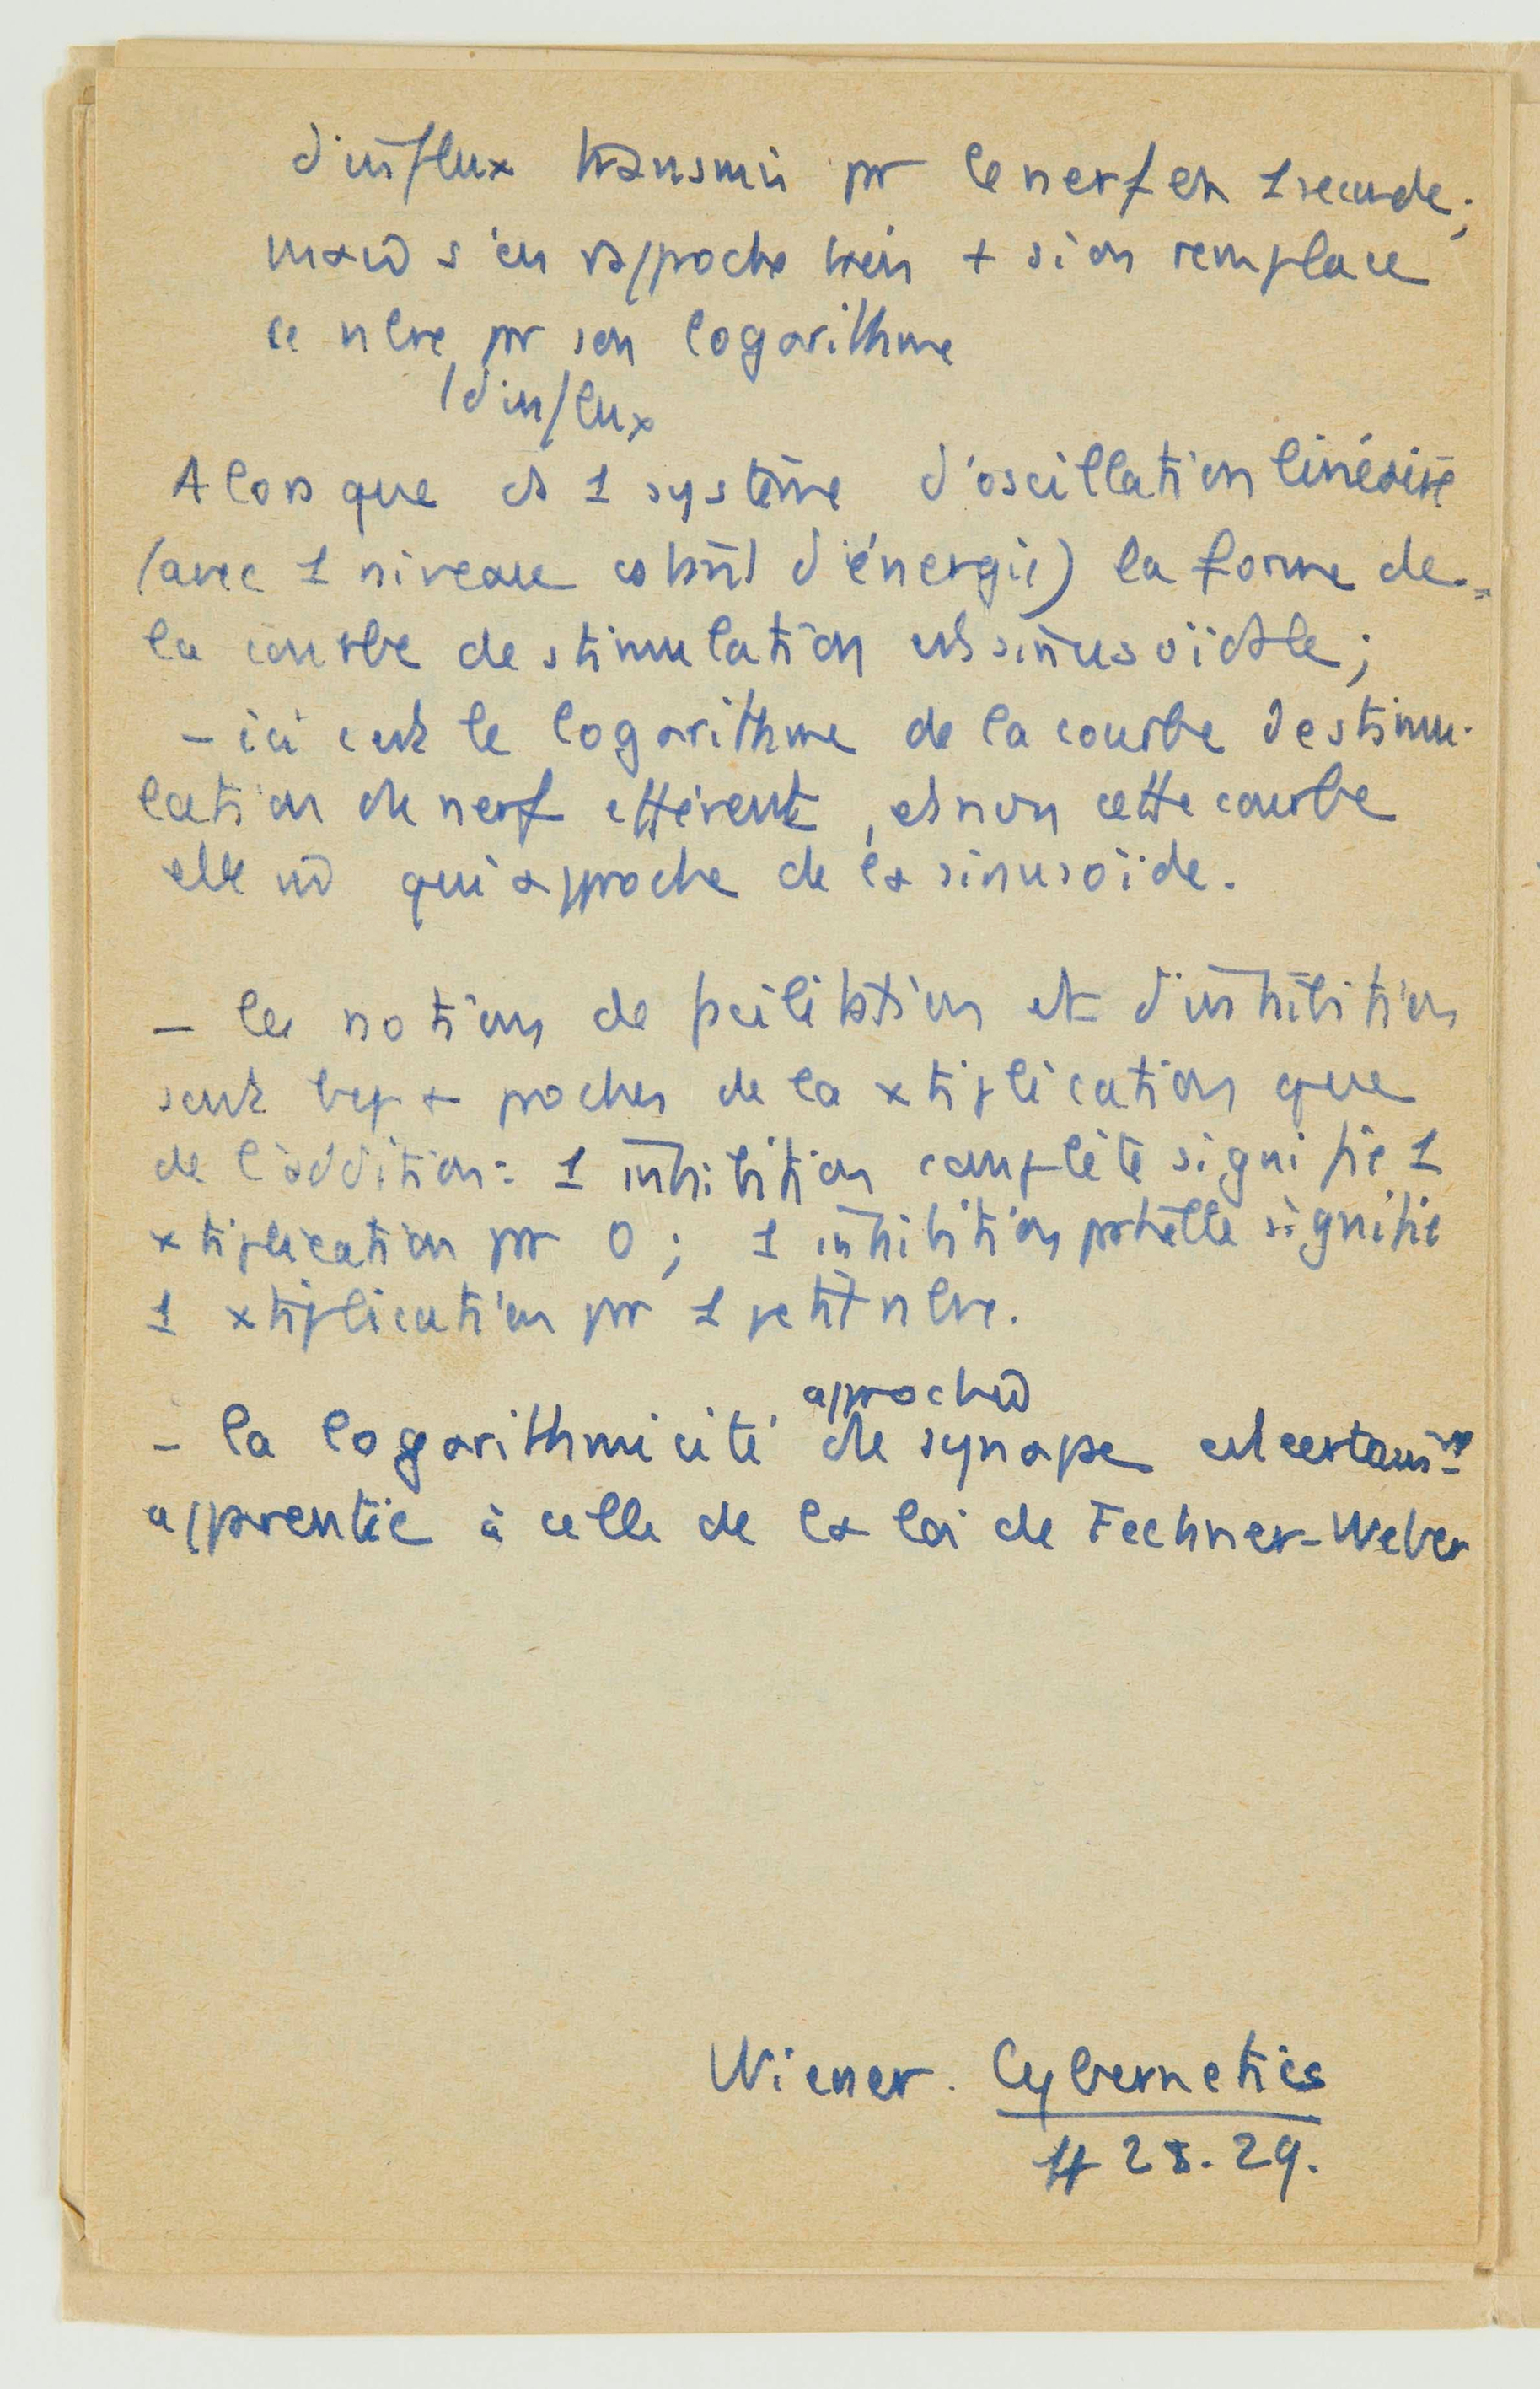 d'influx transmis pr le nerf en 1 seconde ;
mais s'en rapproche bien + si on remplace
ce nbre pr son logarithme
(d'influx
Alors que ds 1 système d'oscillation linéaire
(avec 1 niveau d'énergie) la forme de
la courbe de stimulation est sinusoïdale ;
– ici c'est le logarithme de la courbe de stimu-
lation du nerf efférent, et non cette courbe
elle qui approche de la sinusoïde.
– les notions de facilitation et d'inhibition
sont bcp + proches de la xtiplication que
de l'addition : 1 inhibition complète signifie 1
xtiplication pr 0 ; 1 inhibition ptielle signifie
1 xtiplication pr 1 petit nbre.
approchée
– la logarithmicité de synapse est certaint
apparentée à celle de la loi de Fechner-Weber
Wiener. Cybernetics
# 28. 29.